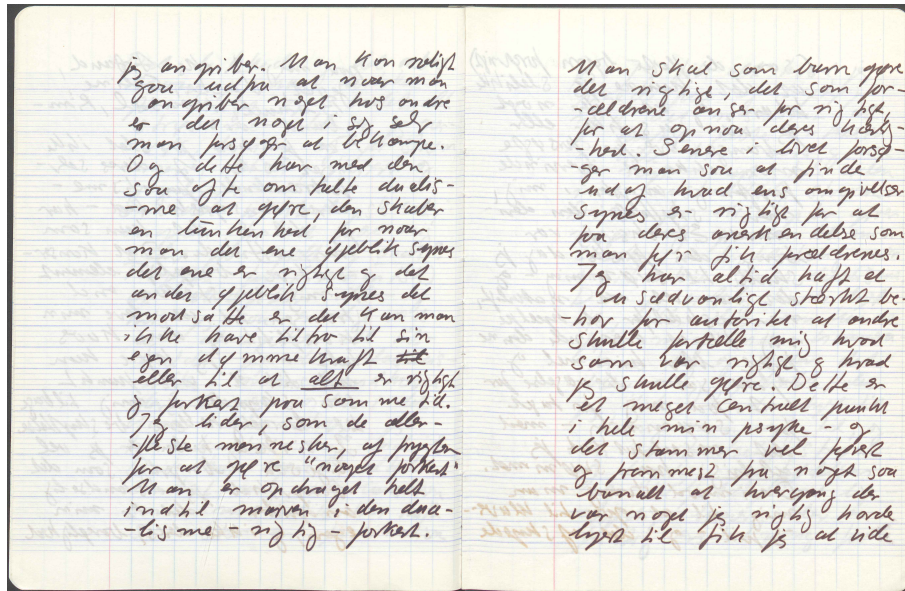 jeg angriber. Man kan roligt
gaa udfra at naar man
angriber noget hos andre
er det noget i sig selv
man forsøger at bekæmpe.
Og dette har med den
saa ofte omtalte dualis-
-me at gøre, den skaber
en for naar
man det ene øjeblik synes
det ene er rigtigt og det
andet øjeblik synes det
modsatte er det kan man
ikke have tiltro til sin
egen dømmekraft
eller til at alt er rigtigt
og forkert paa samme tid.
Jeg lider, som de aller-
-fleste mennesker, af frygten
for at gøre "noget forkert"
Man er opdraget helt
indtil marven i den dua-
-lisme - rigtig - forkert.
Man skal som barn gøre
det rigtige, det som for-
-ældrene anser for rigtigt,
for at opnaa deres kærlig-
-hed. Senere i livet forsø-
-ger man saa at finde
ud af hvad ens omgivelser
synes er rigtigt for at
faa deres anerkendelse som
man før fik forældrenes.
Jeg har altid haft et
usædvanligt stærkt be-
-hov for autoritet at andre
skulle fortælle mig hvad
som var rigtigt og hvad
jeg skulle gøre. Dette er
et meget centralt punkt
i hele min psyke - og
det stammer vel først
og fremmest fra noget saa
banalt at hvergang der
var noget jeg rigtig havde
lyst til fik jeg at vide